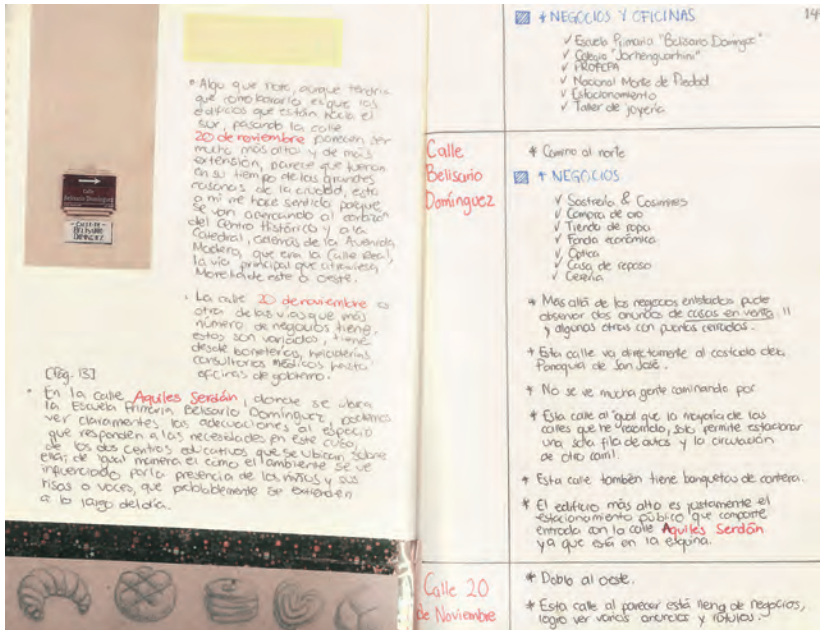 Calle
Belisario Domínguez
CALLE DE
BELISARIO
DOMINGUEZ
• Algo que noto, aunque tendría
que corroborarlo es que los
edificios que están hacia el
sur, pasando la calle
20 de noviembre parecen ser
mucho más altos y de más
extensión, parece que fueron
en su tiempo de las grandes
casonas de la ciudad, esto
a mi me hace sentido porque
se van acercando al corazón
del Centro Histórico y a la
Catedral, además de la Avenida
Madero, que era la Calle Real,
la vía principal que atraviesa
Morelia de este a oeste.
• La calle 20 de noviembre es
otra de las vías que más
número de negocios tiene,
estos son variados, tiene
desde boneterías, heladerías
consultorios médicos hasta
oficinas de gobierno.
[Pág. 13]
• En la calle Aquiles Serdán, donde se ubica
la Escuela Primaria Belisario Domínguez, podemos
ver claramente las adecuaciones al espacio
que responden a las necesidades en este caso,
de los dos centros educativos que se ubican sobre
ella; de igual manera el cómo el ambiente se ve
influenciado por la presencia de los niños y sus
risas o voces, que probablemente se extienden
a lo largo del día.
14
* NEGOCIOS Y OFICINAS
✓ Escuela Primaria "Belisario Domínguez"
✓ Colegio
✓ PROFEPA
✓ Nacional Monte de Piedad
✓ Estacionamiento
✓ Taller de joyería
Calle
Belisario
Domínguez
* Camino al norte
* NEGOCIOS
✓ Sastrería & Casimires
✓ Compra de oro
✓ Tienda de ropa
✓ Fonda económica
✓ Óptica
✓ Casa de reposo
✓ Cerería
* Más allá de los negocios enlistados pude
observar dos anuncios de casas en venta
y algunas otras con puertas cerradas.
* Esta calle va directamente al costado de la
Parroquia de San José.
* No se ve mucha gente caminando por
* Esta calle al igual que la mayoría de las
calles que he recorrido, solo permite estacionar
una sola fila de autos y la circulación
de otro carril.
* Esta calle también tiene banquetas de cantera.
* El edificio más alto es justamente el
estacionamiento público que comparte
entrada con la calle Aquiles Serdán
ya que está en la esquina.
Calle 20
de Noviembre
* Doblo al oeste.
* Esta calle al parecer está llena de negocios,
logro ver varios anuncios y rótulos.